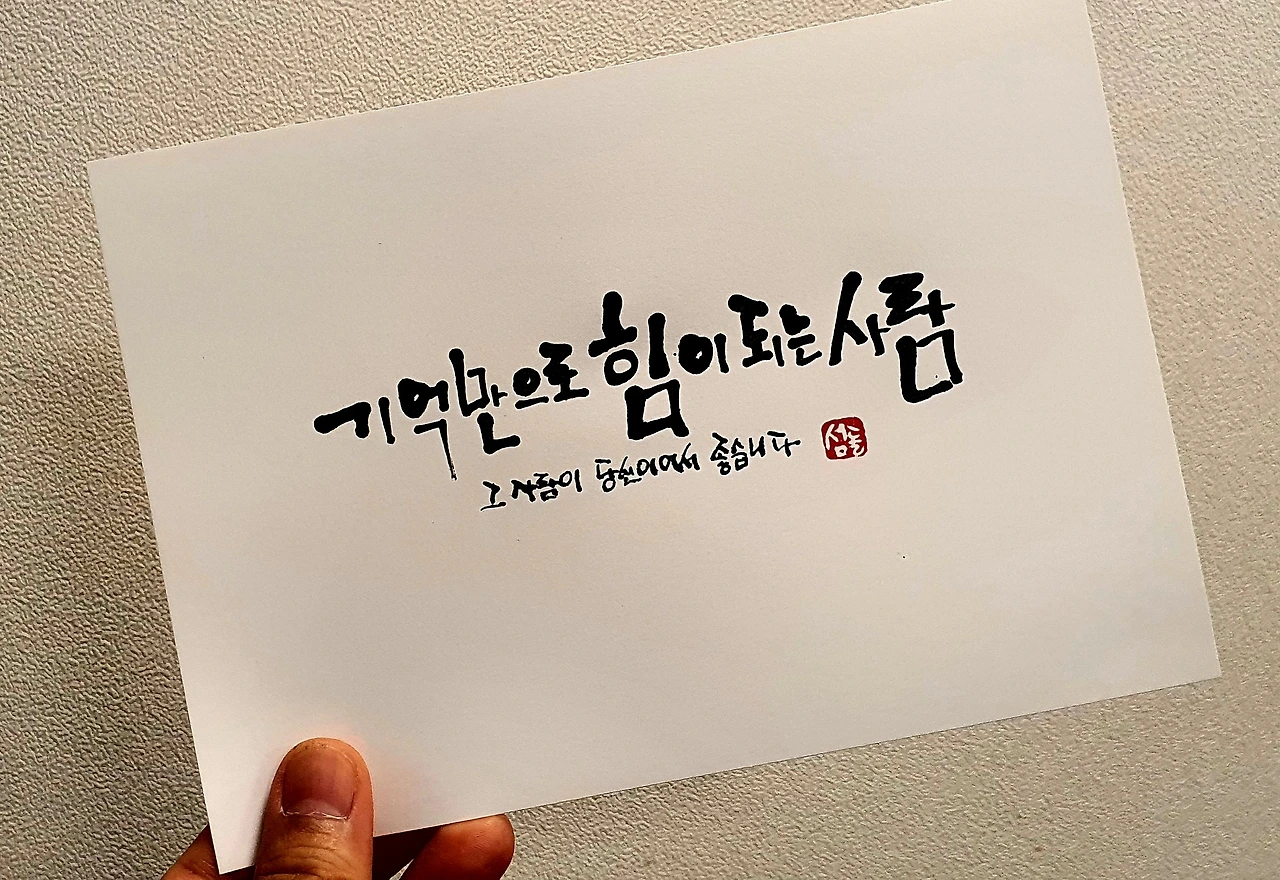 기억만으로 힘이 되는 사람
그 사람이 당신이어서 좋습니다